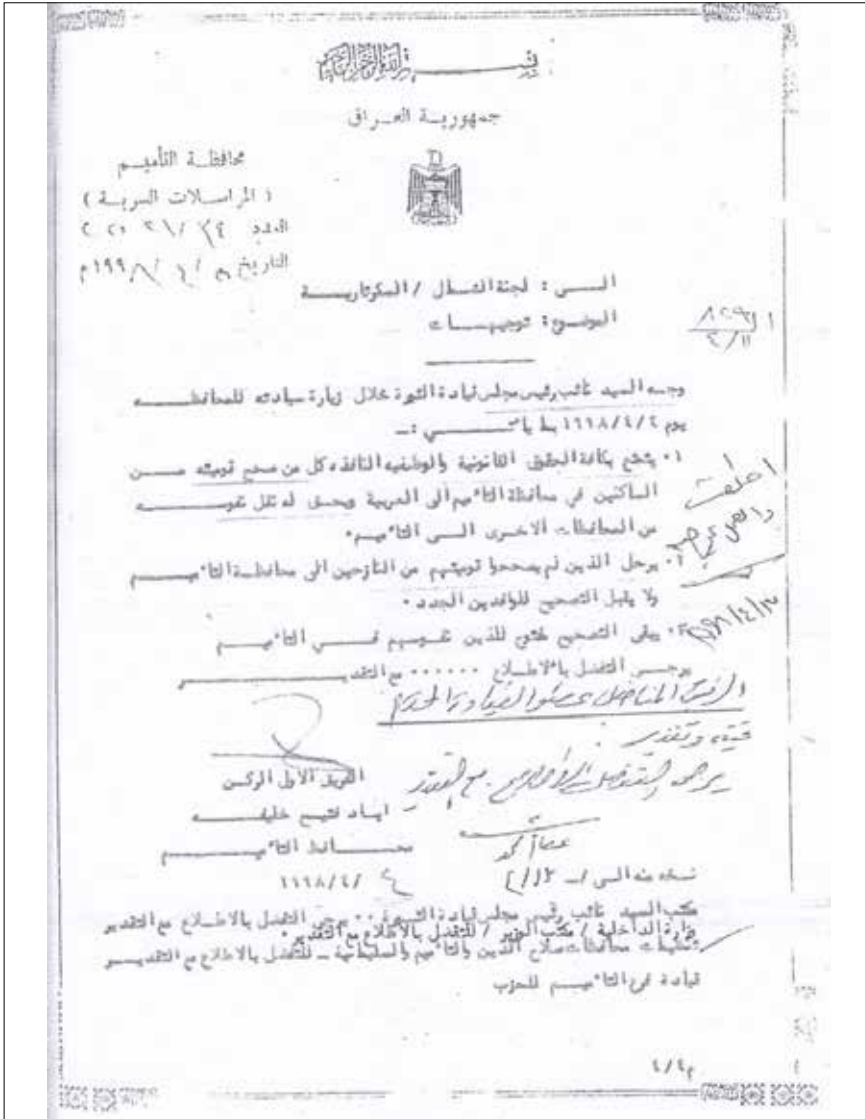 بسم الله الرحمن الرحيم
جمهورية العراق
محافظة التأميم
( المراسلات السرية )
العدد
التاريخ / ٤ / ١٩٩٨م
الى : لجنة الشمال / السكرتارية
الموضوع: توجيهات
وجه السيد نائب رئيس مجلس قيادة الثورة خلال زيارة سيادته للمحافظة
يوم ١٩٩٨/٤/٤ بما يأتي :ـ
١٠ يتمتع بكافة الحقوق القانونية والوظيفية النافذة كل من صحح قوميته من
الساكنين في محافظة التاميم الى العربية ويحق له نقل نفوسه
من المحافظات الاخرى الى التاميم٠
٢٠ يرحل الذين لم يصححوا قوميتهم من النازحين الى محافظة التاميم
ولا يقبل التصحيح للوافدين الجدد ٠
٣٠ يبقى التصحيح مفتوح للذين نفوسهم في التاميم
يرجى التفضل بالاطلاع ٠٠٠٠٠٠ مع التقدير
الرفيق المناضل عضو القيادة المحترم
تحية وتقدير
يرجى التفضل بالاطلاع . مع التقدير
الفريق الاول الركن
اياد فتيح خليفه
محافظ التاميم
١٩٩٨/٤/
نسخه منه الى /ـ
مكتب السيد نائب رئيس مجلس قيادة الثورة ٠٠ يرجى التفضل بالاطلاع مع التقدير
وزارة الداخلية / مكتب الوزير / للتفضل بالاطلاع مع التقدير ٠
تنظيمات محافظات صلاح الدين والتاميم والسليمانية ـ للتفضل بالاطلاع مع التقدير
قيادة فرع التاميم للحزب
م٤/٤